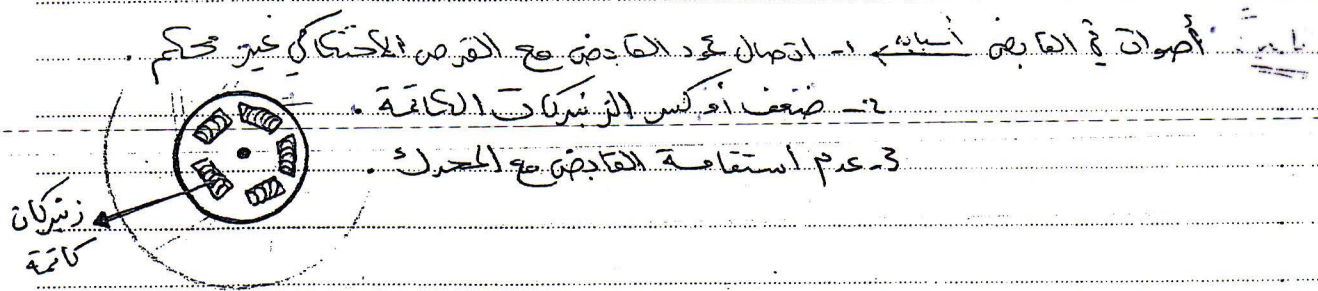 أصوات في القابض أسبابه 1- اتصال عمود القابض مع القرص الاحتكاكي غير محكم .
2- ضعف أو كسر الزنبركات الكاتمة .
3- عدم استقامة القابض مع المحرك .
زنبركات
كاتمة